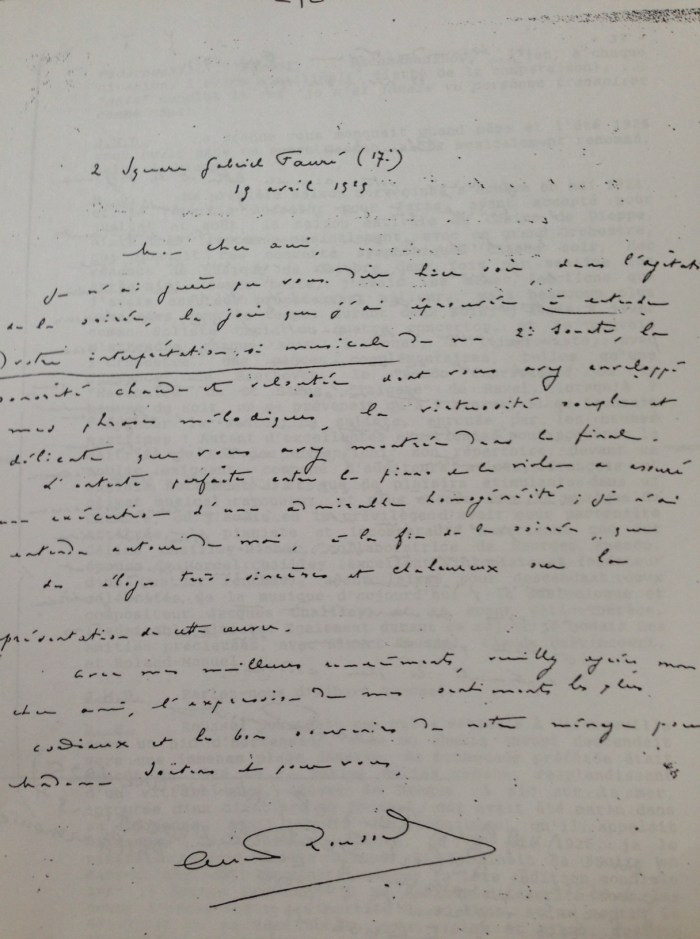 2 Square Gabriel Fauré (17e)
19 avril 1929
Mon cher ami,
Je n'ai guère pu vous dire hier soir, dans l'agitat
de la soirée, la joie que j'ai éprouvée à entendre
votre interprétation si musicale de ma 2e Sonate, la
sonorité chaude et veloutée dont vous avez enveloppé
mes phrases mélodiques, la virtuosité souple et
délicate que vous avez montrée dans le final.
L'entente parfaite entre le piano et le violon a assuré
une exécution d'une admirable homogénéité ; je n'ai
entendu autour de moi, à la fin de la soirée, que
des éloges très sincères et chaleureux sur la
présentation de cette œuvre.
Avec mes meilleurs remerciements, veuillez agréer mon
cher ami, l'expression de mes sentiments les plus
cordiaux et les bons souvenirs de notre ménage pour
Madame et pour vous.
Albert Roussel